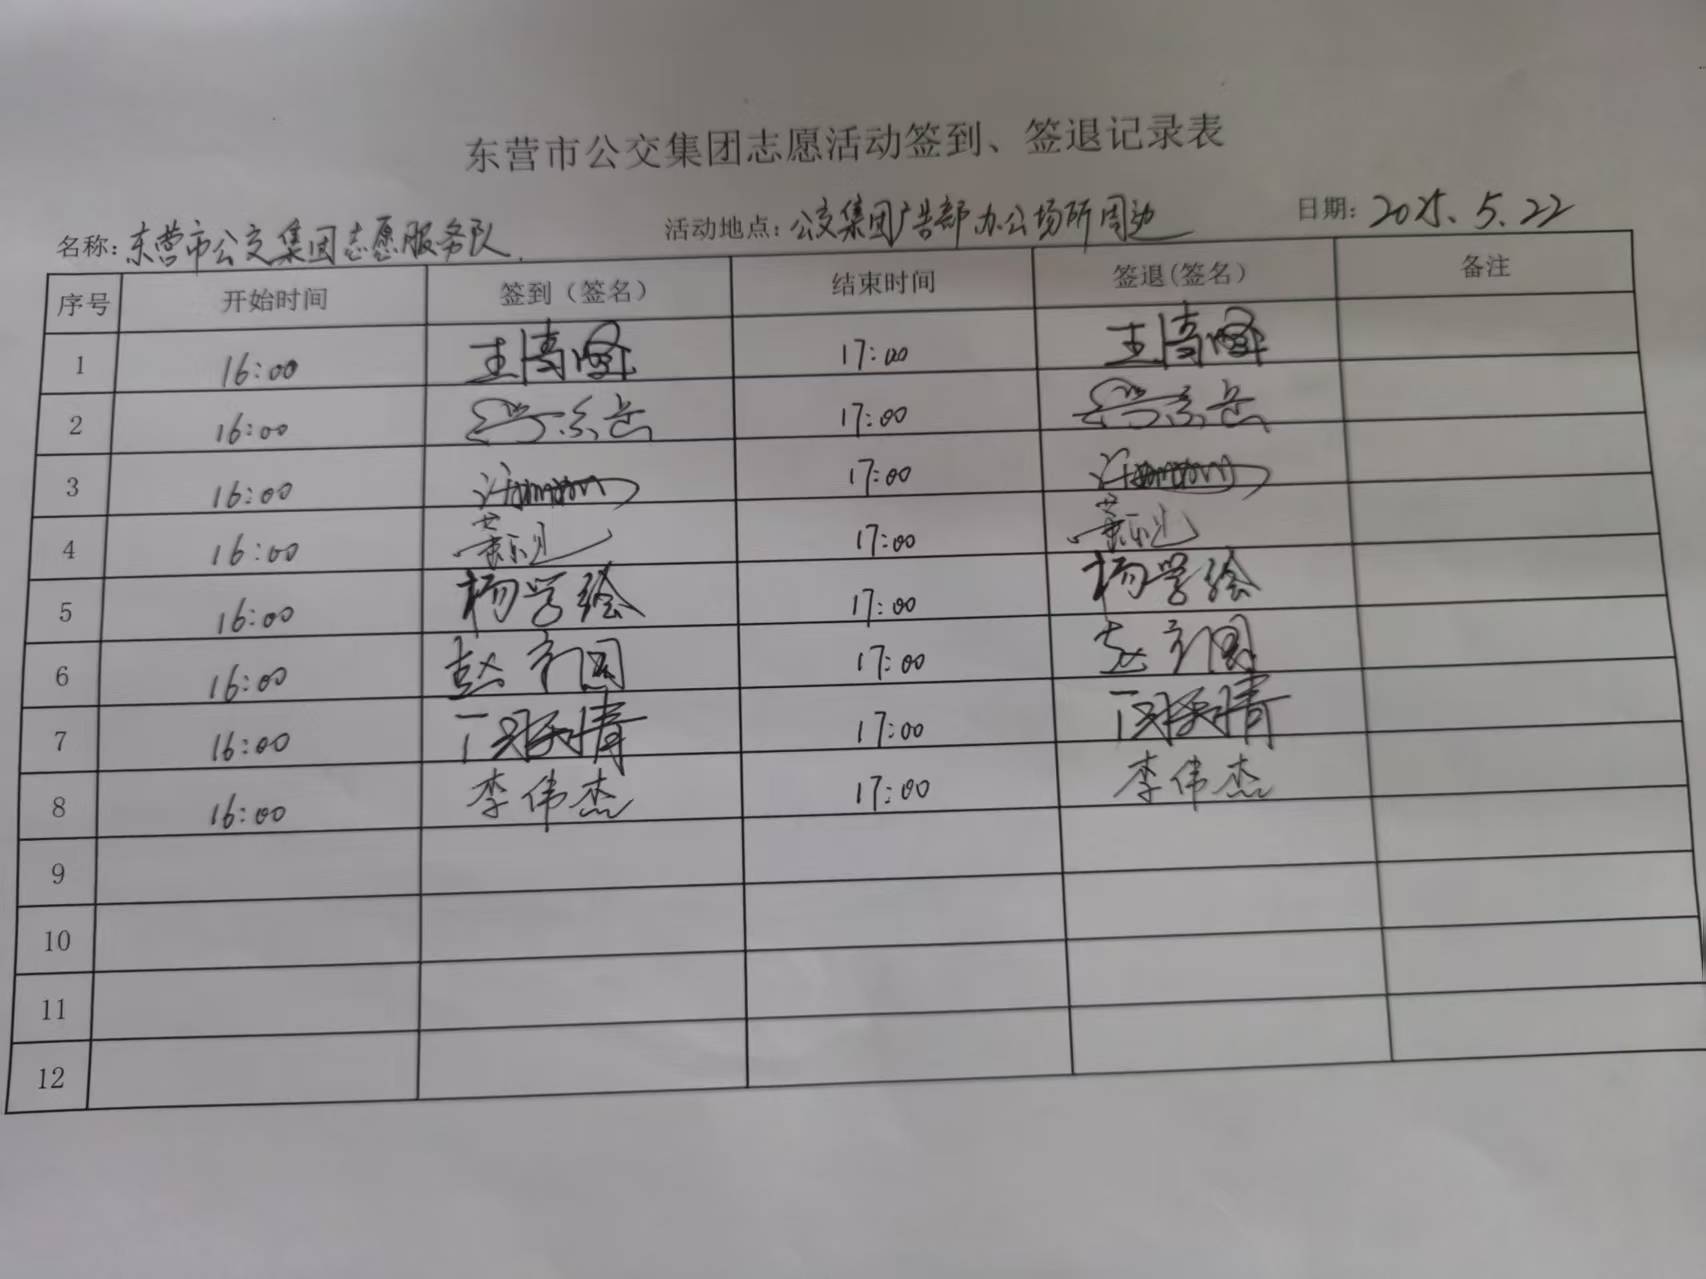 东营市公交集团志愿活动签到、签退记录表
名称：东营市公交集团志愿服务队 活动地点：公交集团广告部办公场所周边 日期：2025.5.22
序号 开始时间 签到（签名） 结束时间 签退(签名) 备注
1 16:00 17:00
2 16:00 17:00
3 16:00 17:00
4 16:00 17:00
5 16:00 杨学绘 17:00 杨学绘
6 16:00 17:00
7 16:00 17:00
8 16:00 李伟杰 17:00 李伟杰
9
10
11
12